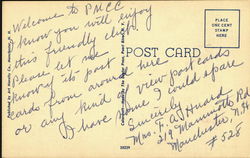 Welcome to PMCC
I know you will enjoy
this friendly club.
Please let me
know if post
cards from around here
or any kind of view postcards
I have some I could spare
Sincerely
Mrs. F. A. Huard
219 Mammoth Rd
Manchester N.H.
# 528
POST CARD
PLACE
ONE CENT
STAMP
HERE